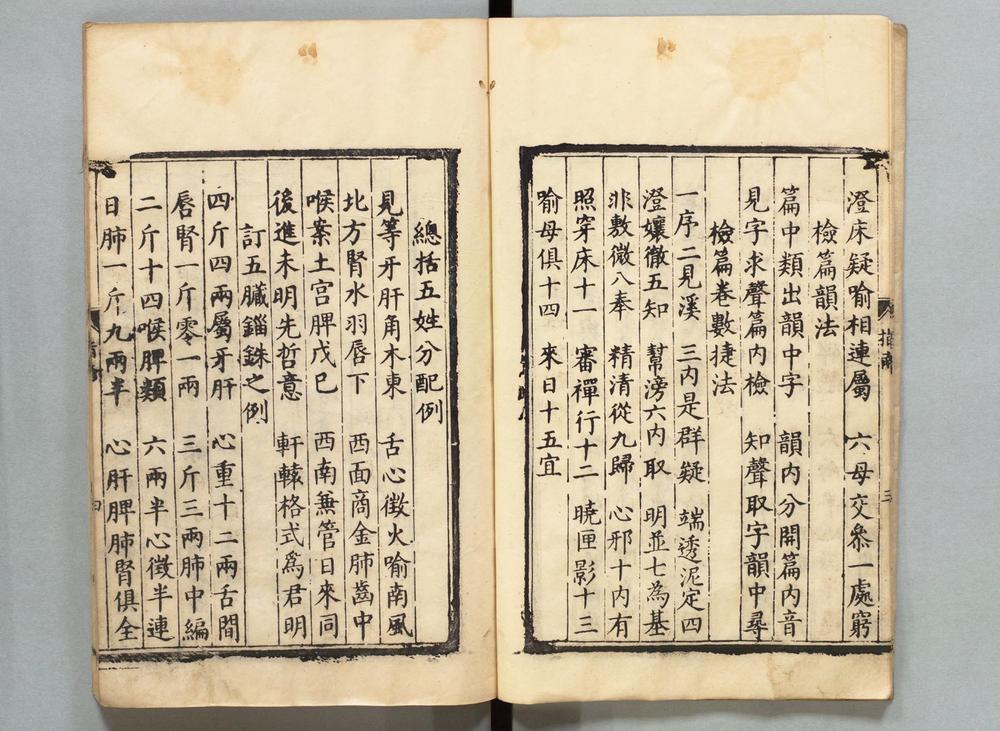 澄床疑喻相連屬 六母交叅一處窮
檢篇韻法
篇中類出韻中字 韻內分開篇內音
見字求聲篇內檢 知聲取字韻中尋
檢篇卷數捷法
一序二見溪 三內是群疑 端透泥定四
澄孃徹五知 幫滂六內取 明並七為基
非敷微八奉 精清從九歸 心邪十內有
照穿床十一 審禪行十二 曉匣影十三
喻母俱十四 來日十五宜
指南
三
總括五姓分配例
見等牙肝角木東 舌心徵火喻南風
北方腎水羽唇下 西面商金肺齒中
喉案土宮脾戊巳 西南兼管日來同
後進未明先哲意 軒轅格式爲君明
訂五臟錙銖之例
四斤四兩屬牙肝 心重十二兩舌間
唇腎一斤零一兩 三斤三兩肺中編
二斤十四喉脾類 六兩半心徵半連
日肺一斤九兩半 心肝脾肺腎俱全